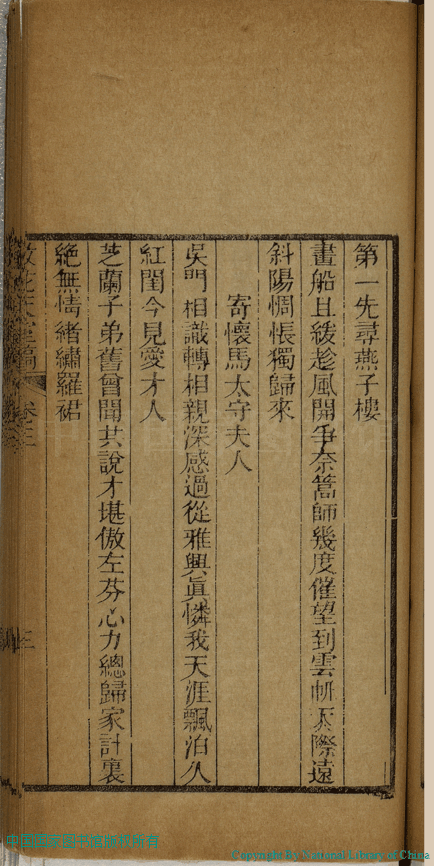 第一先尋燕子樓
畫船且緩趁風開爭奈篙師幾度催望到雲帆天際遠
斜陽惆悵獨歸來
寄懷馬太守夫人
吳門相識轉相親深感過從雅興眞憐我天涯飄泊久
紅閨今見愛才人
芝蘭子弟舊曾聞共說才堪傲左芬心力總歸家計裏
絕無情緒繡羅裙
卷三
三
Copyright By National Library of China